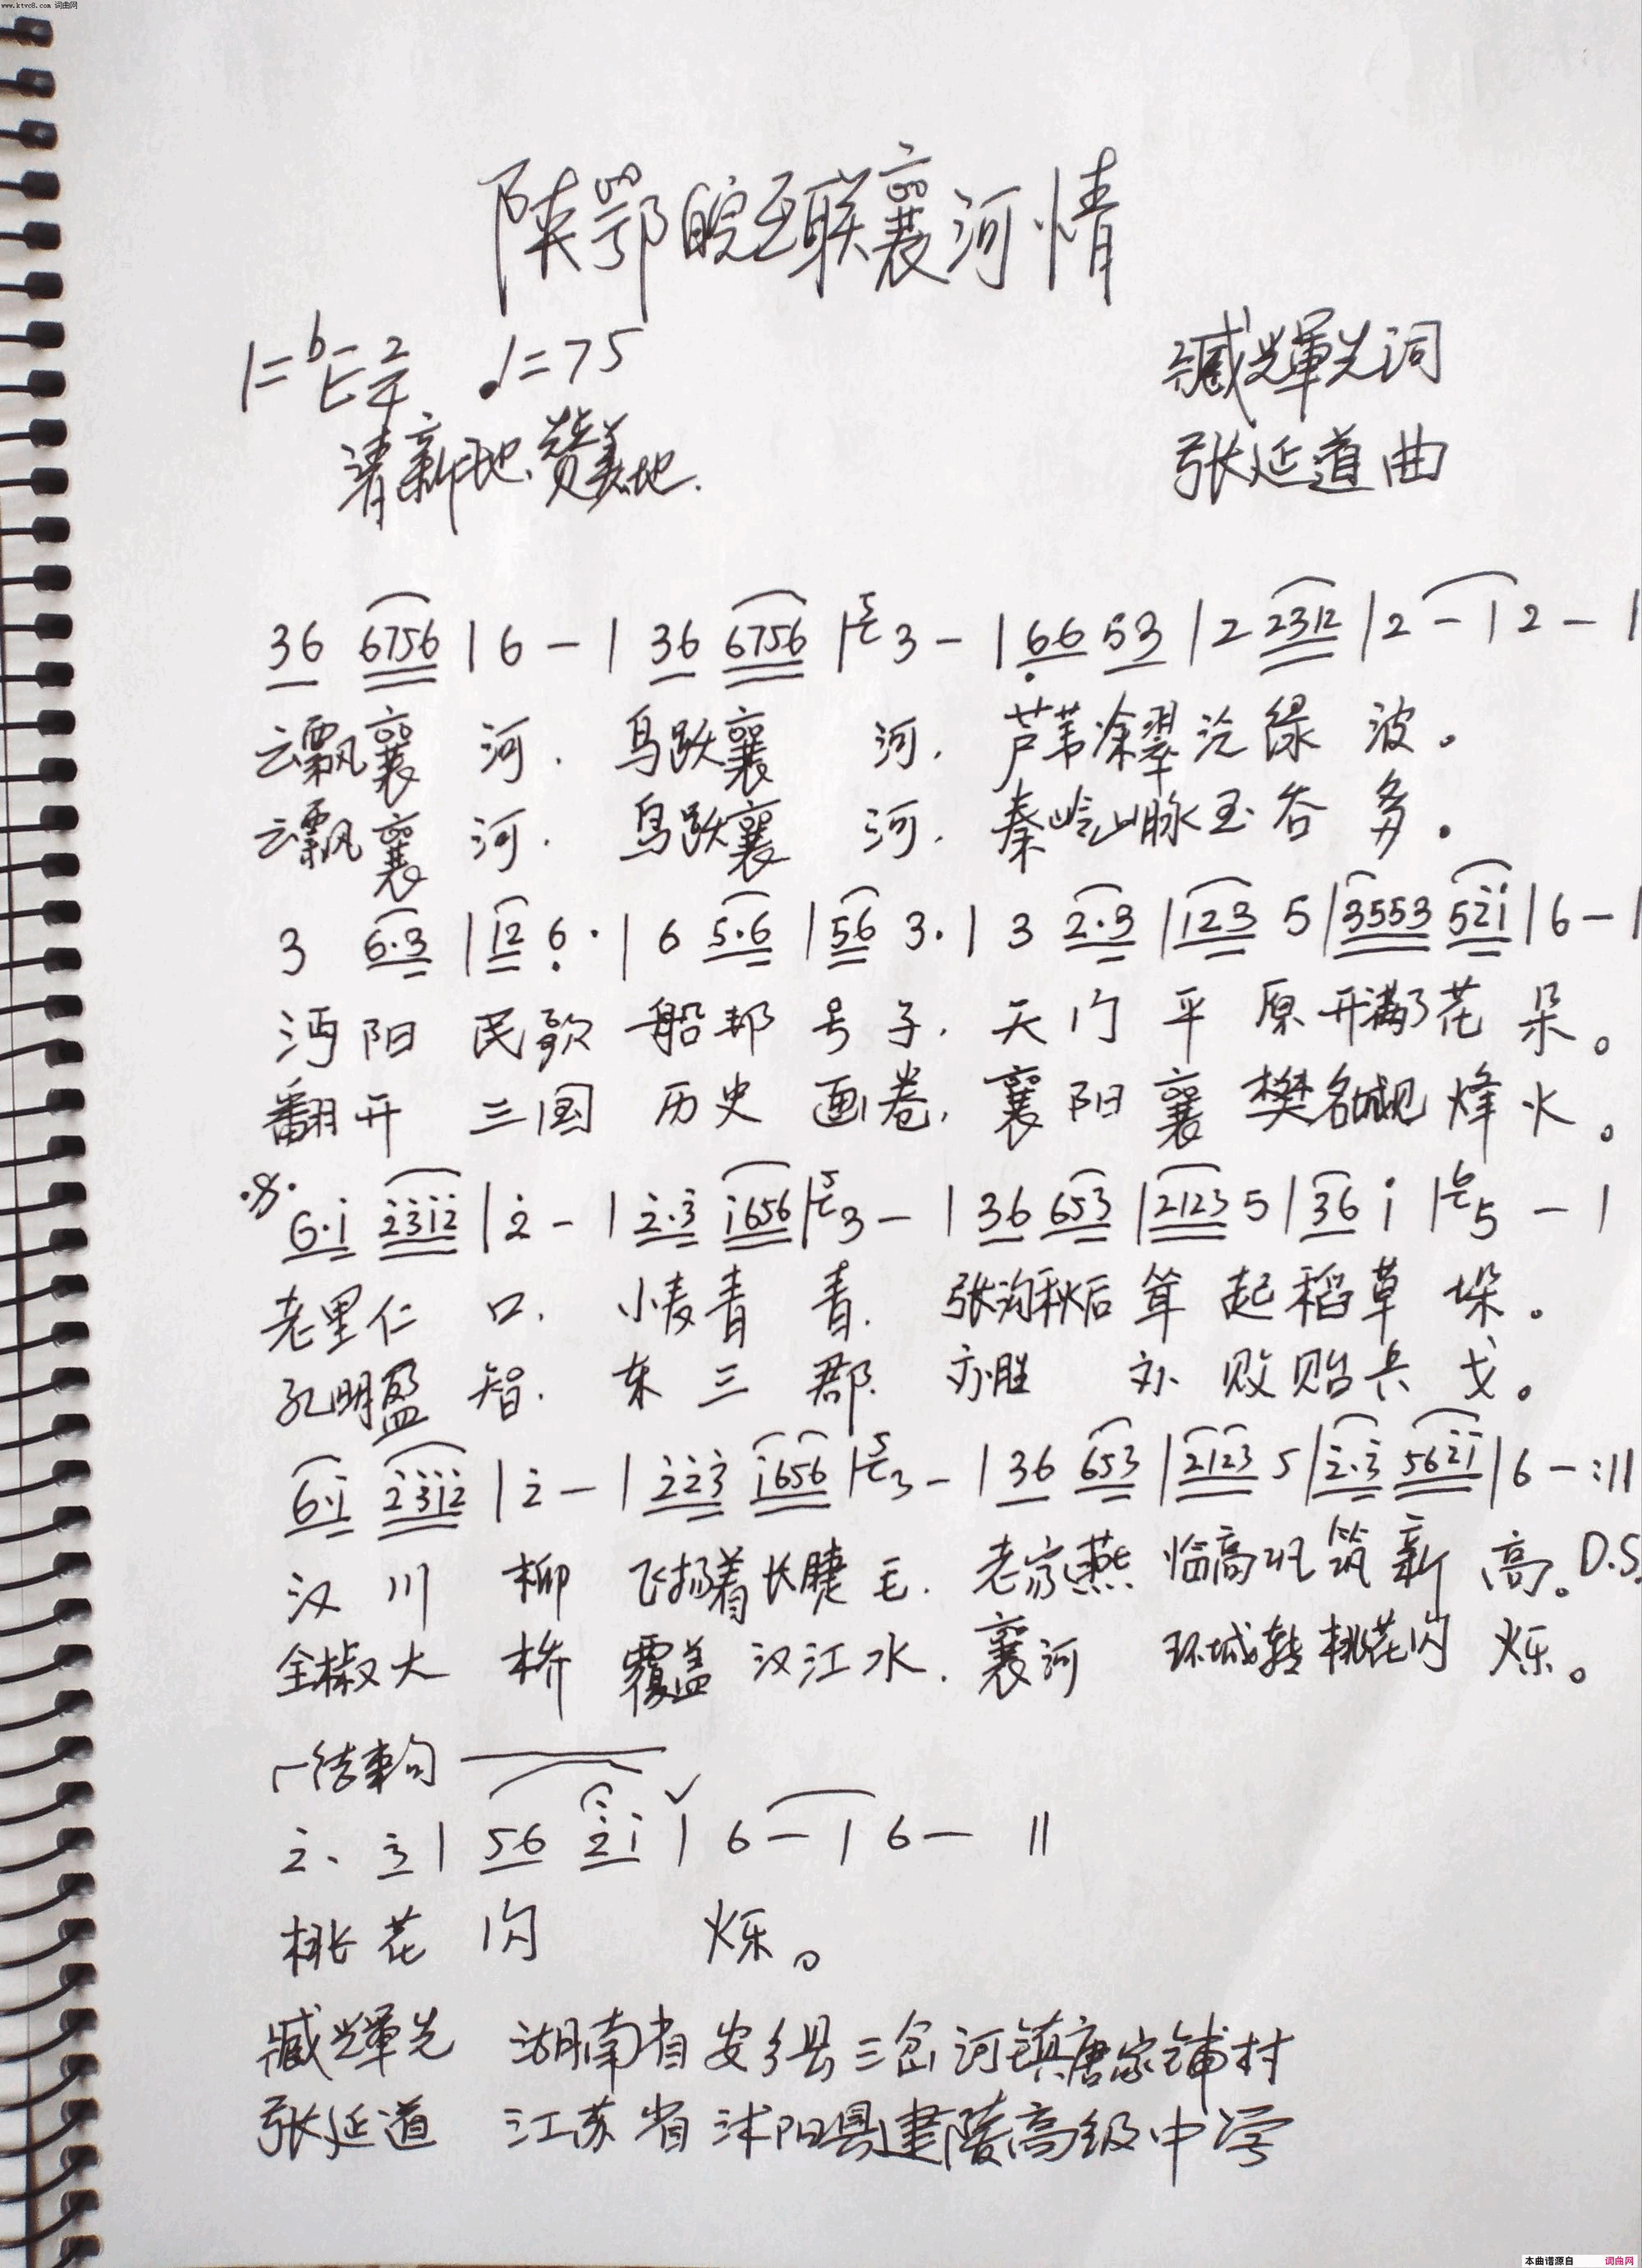 www.ktvc8.com 词曲网
陕鄂皖互联襄河情
1=bE 2/4 ♩=75
臧輝光词
清新地、赞美地.
张延道曲
36 6756 | 6 - | 36 6756 | 3 - | 66 53 | 2 2312 | 2 - | 2 - |
云飘襄河. 鸟跃襄河. 芦苇涂翠泛绿波。
云飘襄河. 鸟跃襄河. 秦岭山脉玉谷多.
3 6·3 | 12 6· | 6 5·6 | 56 3· | 3 2·3 | 123 5 | 3553 52i | 6 - |
沔阳民歌船邦号子. 天门平原开满了花朵。
翻开三国历史画卷, 襄阳襄樊名城见烽火。
6·i 2312 | 2 - | 2·3 i656 | 3 - | 36 653 | 2123 5 | 36 i | 5 - |
老里仁口. 小麦青青. 张沟秋后耸起稻草垛。
孔明盈智. 东三郡. 亦胜亦败贻兵戈。
6·i 2312 | 2 - | 223 i656 | 3 - | 36 653 | 2123 5 | 2·3 562i | 6 - :||
汉川柳飞扬着长睫毛. 老家燕临高筑新高。D.S.
全椒大桥覆盖汉江水. 襄河环城转桃花闪烁。
结束句
2· 3 | 56 2i | 6 - | 6 - ||
桃花闪烁。
臧輝光 湖南省安乡县三岔河镇唐家铺村
张延道 江苏省沭阳县建陵高级中学
本曲谱源自 词曲网